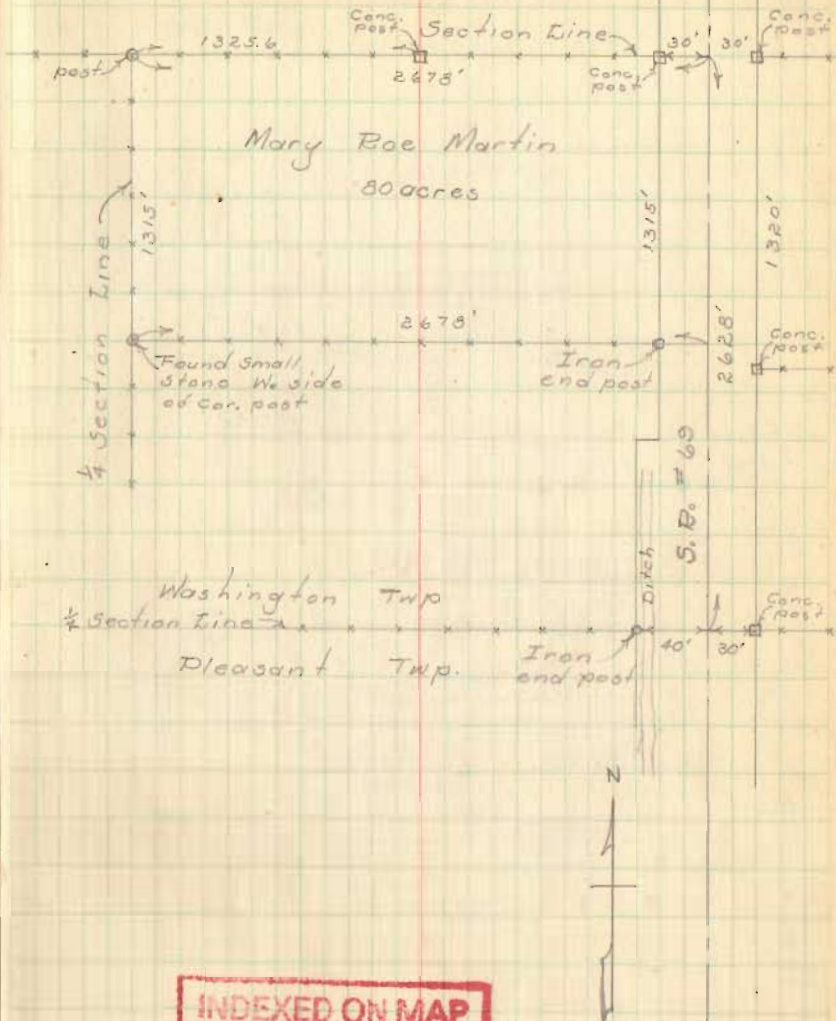 Conc.
post
Section Line
Conc.
post
post
1325.6
2678'
Conc.
post
30'
30'
Mary Roe Martin
80 acres
1315'
1315'
1320'
1/4 Section Line
2678'
2628'
Conc.
post
Found Small
Stone W. side
of cor. post
Iron
end post
S.R. #69
Ditch
Washington Twp
1/4 Section Line
Pleasant Twp.
Iron
end post
40'
30'
Conc.
post
N
INDEXED ON MAP